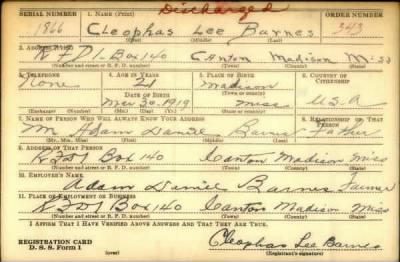 Discharged
SERIAL NUMBER 1. NAME (Print) ORDER NUMBER
1866 Cleophas Lee Barnes 343
(First) (Middle) (Last)
2. ADDRESS (Print)
R.F.D 1. Box 140 Canton Madison Miss
(Number and street or R. F. D. number) (Town) (County) (State)
3. TELEPHONE 4. AGE IN YEARS 5. PLACE OF BIRTH 6. COUNTRY OF CITIZENSHIP
None 21 Madison
DATE OF BIRTH (Town or county)
Mar 30, 1919 Miss U.S.A
(Exchange) (Number) (Mo.) (Day) (Yr.) (State or country)
7. NAME OF PERSON WHO WILL ALWAYS KNOW YOUR ADDRESS 8. RELATIONSHIP OF THAT PERSON
Mr. Adam Daniel Barnes Father
(Mr., Mrs., Miss) (First) (Middle) (Last)
9. ADDRESS OF THAT PERSON
R.F.D 1 Box 140 Canton Madison Miss
(Number and street or R. F. D. number) (Town) (County) (State)
10. EMPLOYER'S NAME
Adam Daniel Barnes Farmer
11. PLACE OF EMPLOYMENT OR BUSINESS
R.F.D 1 Box 140 Canton Madison Miss
(Number and street or R. F. D. number) (Town) (County) (State)
I AFFIRM THAT I HAVE VERIFIED ABOVE ANSWERS AND THAT THEY ARE TRUE.
REGISTRATION CARD Cleophas Lee Barnes
D. S. S. Form 1 (over) (Registrant's signature)